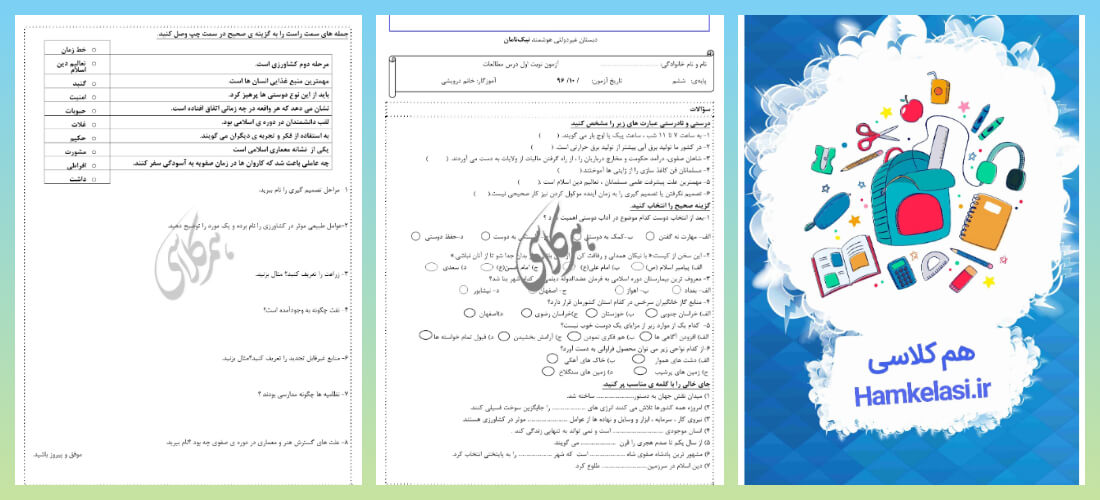 جمله های سمت راست را به گزینه ی صحیح در سمت چپ وصل کنید.
خط زمان
مرحله دوم کشاورزی است.
تعالیم دین اسلام
مهمترین منبع غذایی انسان ها است
گنبد
باید از این نوع دوستی ها پرهیز کرد.
امنیت
نشان می دهد که هر واقعه در چه زمانی اتفاق افتاده است.
حبوبات
لقب دانشمندان در دوره ی اسلامی بود.
غلات
به استفاده از فکر و تجربه ی دیگران می گویند.
حکیم
یکی از نشانه معماری اسلامی است
مشورت
چه عاملی باعث شد که کاروان ها در زمان صفویه به آسودگی سفر کنند.
افراطی
داشت
۱. مراحل تصمیم گیری را نام ببرید.
۲-عوامل طبیعی موثر در کشاورزی را نام برده و یک مورد را توضیح دهید.
۳- زراعت را تعریف کنید؟ مثال بزنید.
۴- نفت چگونه به وجودآمده است؟
۶- منابع غیرقابل تجدید را تعریف کنید؟مثال بزنید.
۷- نظامیه ها چگونه مدارسی بودند ؟
۸- علت های گسترش هنر و معماری در دوره ی صفوی چه بود ۴نام ببرید.
موفق و پیروز باشید.
هم کلاسی
دبستان غیردولتی هوشمند نیک‌نامان
نام و نام خانوادگی: آزمون نوبت اول درس مطالعات
پایه‌ی: ششم تاریخ آزمون: / ۱۰/ ۹۶ آموزگار: خانم درویشی
سؤالات
درستی و نادرستی عبارت های زیر را مشخص کنید.
۱- به ساعت ۷ تا ۱۱ شب ، ساعت پیک یا اوج بار می گویند. ( )
۲- در کشور ما تولید برق آبی بیشتر از تولید برق حرارتی است. ( )
۳- شاهان صفوی، درآمد حکومت و مخارج درباریان را ، از راه گرفتن مالیات از ولایات به دست می آوردند. ( )
۴- مسلمانان فن کاغذ سازی را از ژاپنی ها آموختند.( )
۵- مهمترین علت پیشرفت علمی مسلمانان ، تعالیم دین اسلام است .( )
۶- تصمیم نگرفتن یا تصمیم گیری را به زمان آینده موکول کردن نیز کار صحیحی نیست.( )
گزینه صحیح را انتخاب کنید.
۱- بعد از انتخاب دوست کدام موضوع در آداب دوستی اهمیت دارد ؟
الف- مهارت نه گفتن ب-کمک به دوستی به دوست د-حفظ دوستی
۲- این سخن از کیست« با نیکان همدلی و رفاقت کن بدان جدا شو تا از آنان نباشی.»
الف) پیامبر اسلام (ص) ب) امام علی(ع) ج) امام حسن(ع) د) سعدی
۳- معروف ترین بیمارستان دوره اسلامی به فرمان عضدالدوله شهر بنا شد؟
الف- بغداد ب- اهواز ج- اصفهان د- نیشابور
۴- منابع گاز خانگیران سرخس در کدام استان کشورمان قرار دارد؟
الف) خراسان جنوبی ب) خوزستان ج)خراسان رضوی د)اصفهان
۵- کدام یک از موارد زیر از مزایای یک دوست خوب نیست؟
الف)افزودن آگاهی ها ب) هم فکری نمودن ج) آرامش بخشیدن د) قبول تمام خواسته ها
۶-از کدام نواحی زیر می توان محصول فراوانی به دست آورد؟
الف) دشت های هموار ب) خاک های آهکی
ج) زمین های پرشیب د) زمین های سنگلاخ
جای خالی را با کلمه ی مناسب پر کنید.
۱) میدان نقش جهان به دستور................ ساخته شد.
۲) امروزه همه کشورها تلاش می کنند انرژی های ............... را جایگزین سوخت فسیلی کنند.
۳) نیروی کار ، سرمایه ، ابزار و وسایل و نهاده ها از عوامل ............... موثر در کشاورزی هستند.
۴) انسان موجودی ............... است و نمی تواند به تنهایی زندگی کند .
۵) از سال یکم تا صدم هجری را قرن ............... می گویند.
۶) مشهور ترین پادشاه صفوی شاه ............... است که شهر ............... را به پایتختی انتخاب کرد.
۷) دین اسلام در سرزمین............... طلوع کرد.
هم کلاسی
هم کلاسی
Hamkelasi.ir